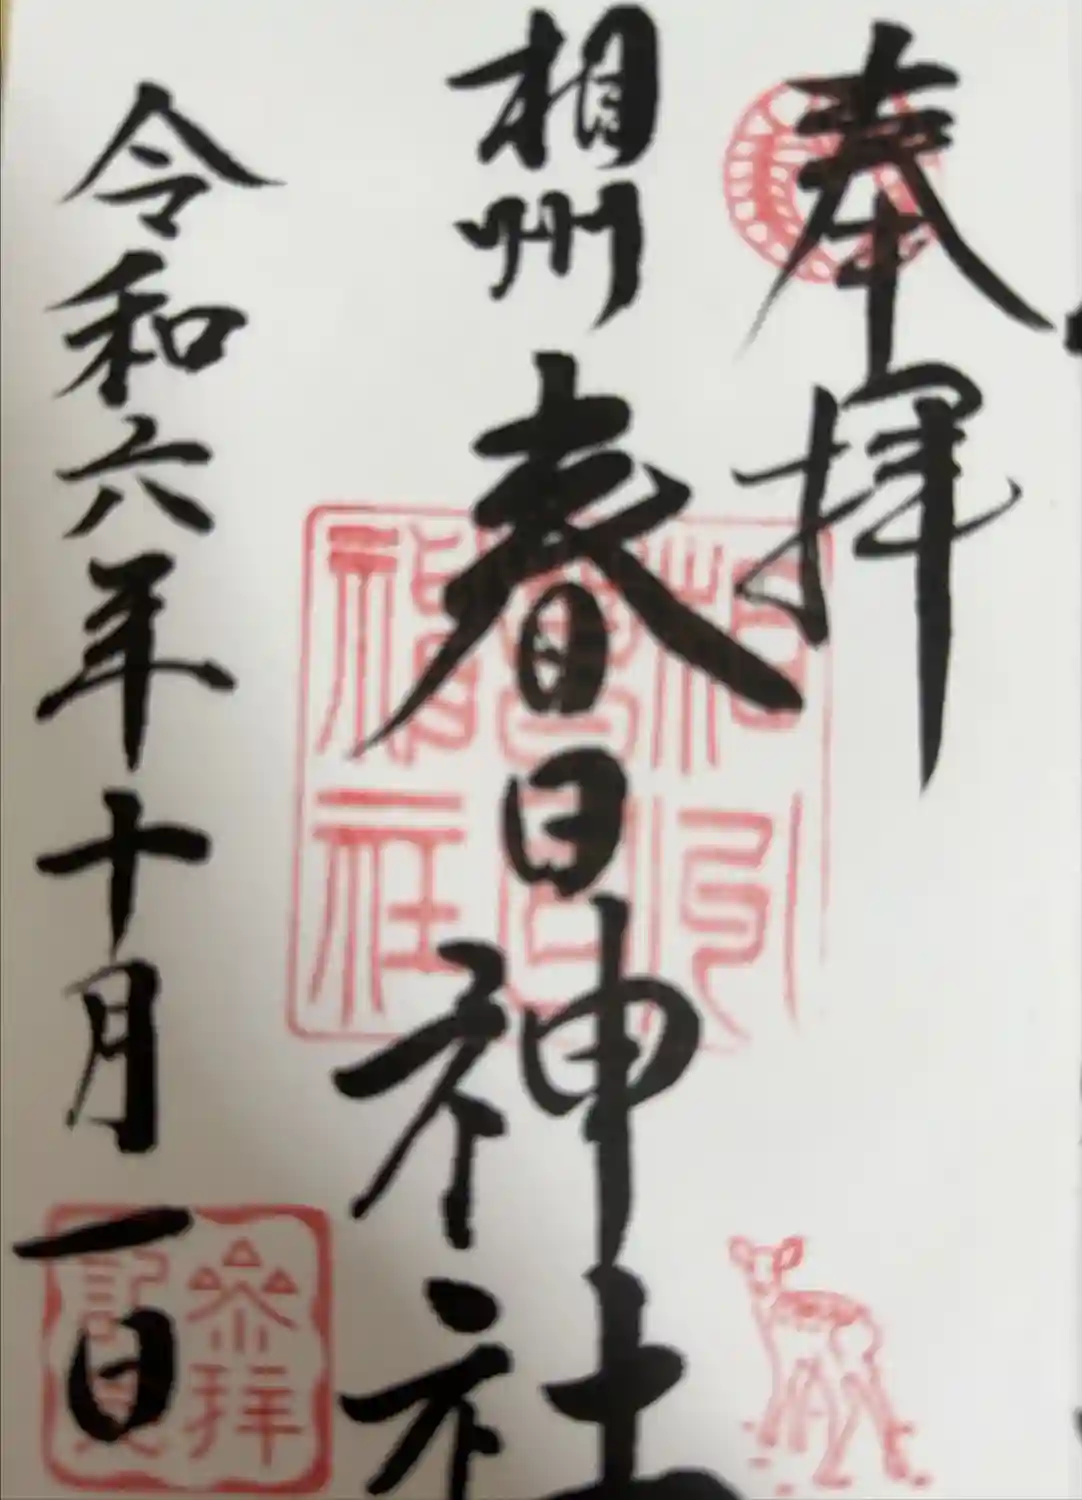 奉拝
相州
春日神社
令和六年十月一日
参拝
記